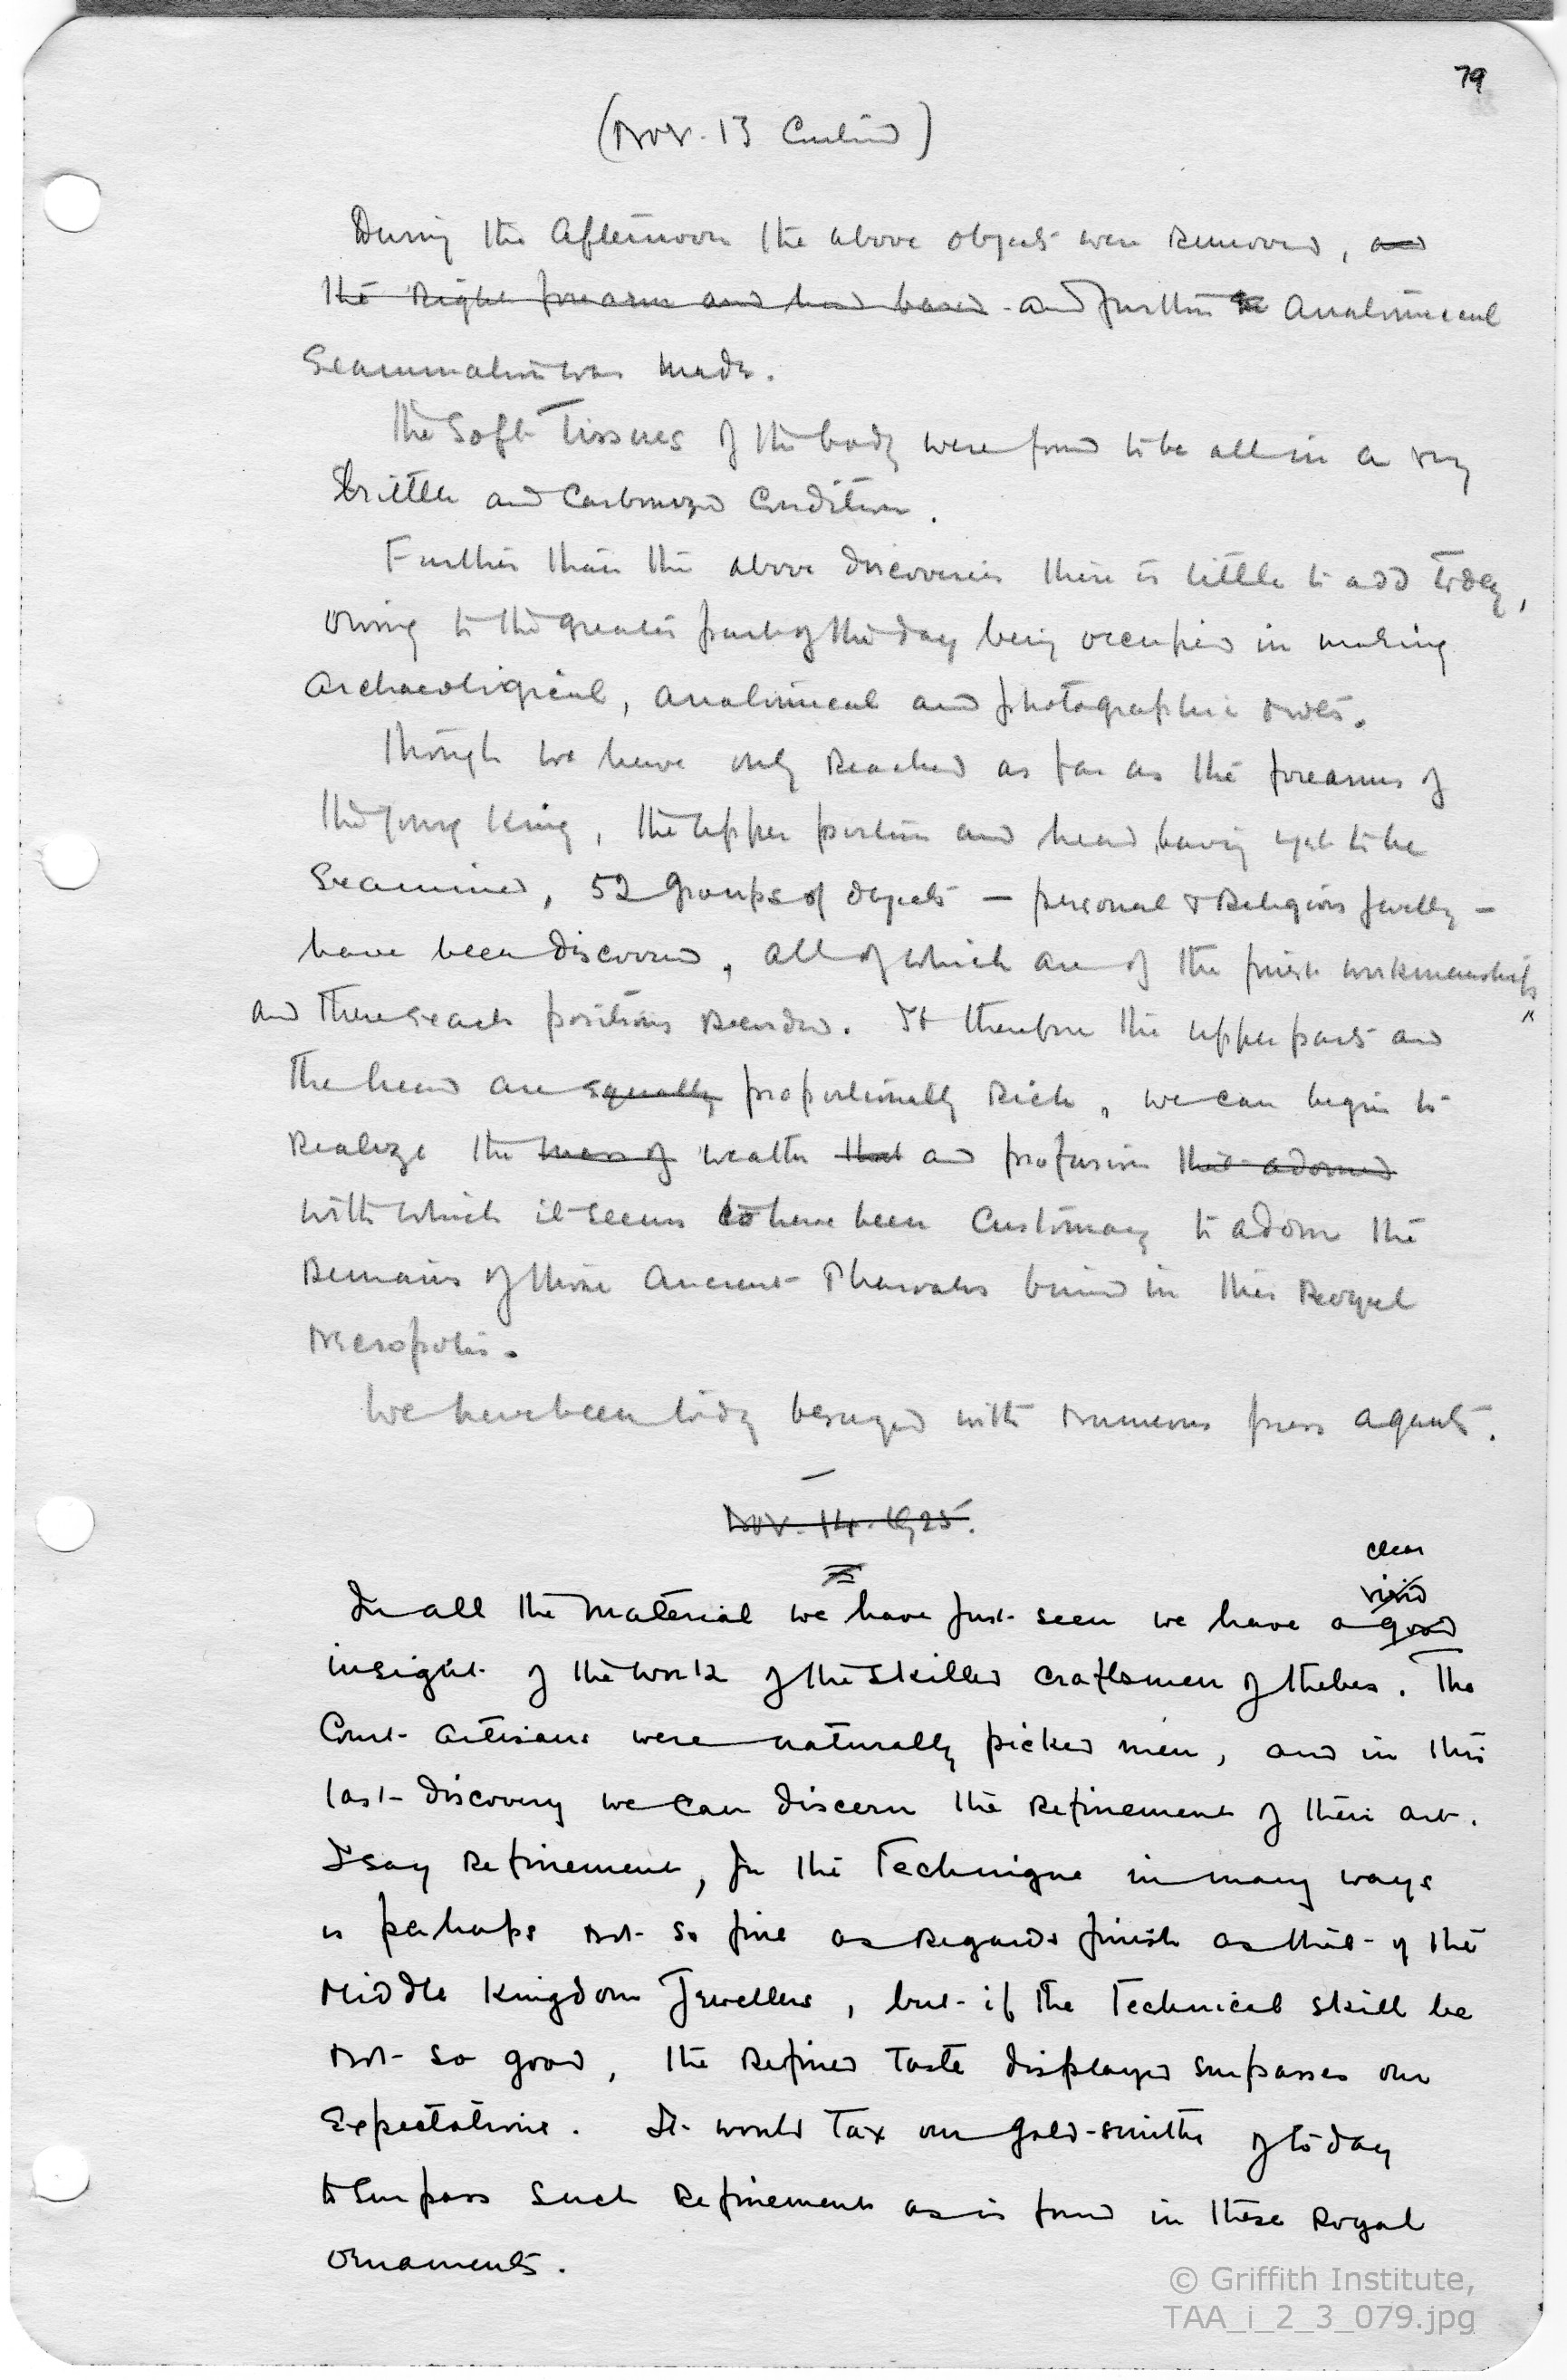 79
(Nov. 13 Contind)
During the afternoon the above objects were removed, and
the right forearm and hand bared - and further anatomical
examination was made.
The soft tissues of the body were found to be all in a very
brittle and carbonized condition.
Further than the above discoveries there is little to add today,
owing to the greater part of the day being occupied in making
archaeological, anatomical and photographic notes.
Though we have only reached as far as the forearms of
the young King, the upper portion and head having yet to be
examined, 52 groups of objects — personal & religious jewelly —
have been discovered, all of which are of the finest workmanship
and there exact positions recorded. If therefore the upper parts and
the head are equally proportionally rich, we can begin to
realize the mass of wealth that and profusion that adorned
with which it seems to have been customary to adorn the
remains of those ancient Pharoahs buried in this Royal
Necropolis.
We have been today besieged with numerous press agents.
Nov. 14. 1925.
clear
vivid
In all the material we have just seen we have a good
insight of the work of the skilled craftsmen of Thebes. The
Court artisans were naturally picked men, and in this
last discovery we can discern the refinement of their art.
I say refinement, for the technique in many ways
is perhaps not so fine as regards finish as that of the
Middle Kingdom Jewellers, but if the technical skill be
not so good, the refined taste displayed surpasses our
expectations. It would tax our gold-smiths of to day
to surpass such refinement as is found in these Royal
ornaments.
© Griffith Institute,
TAA_i_2_3_079.jpg